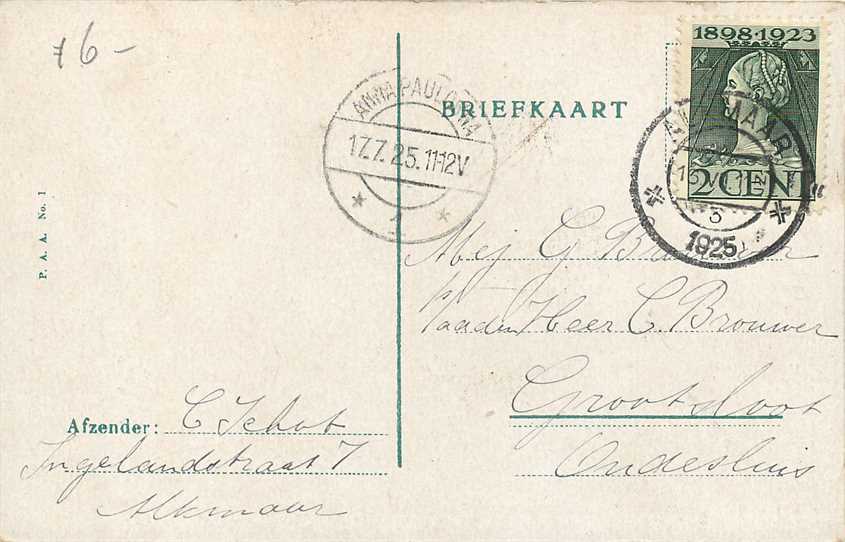 f 6 -
1898·1923
2 CENT
ALKMAAR
1925
BRIEFKAART
ANNA PAULOWNA
17.7.25.11-12V
1
P. A. A. No. 1
Mej G Brouwer
p/a den Heer C. Brouwer
Grootsloot
Oudesluis
Afzender: C Schot
Ingelandstraat 7
Alkmaar